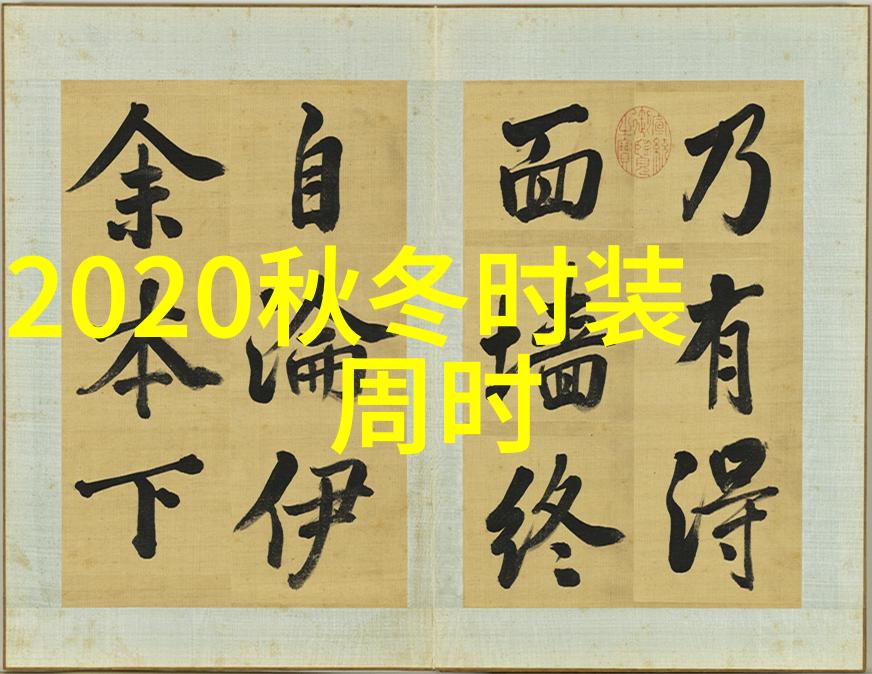 乃有得
面墙终
自沦伊
余本下
2020秋冬时装
周时